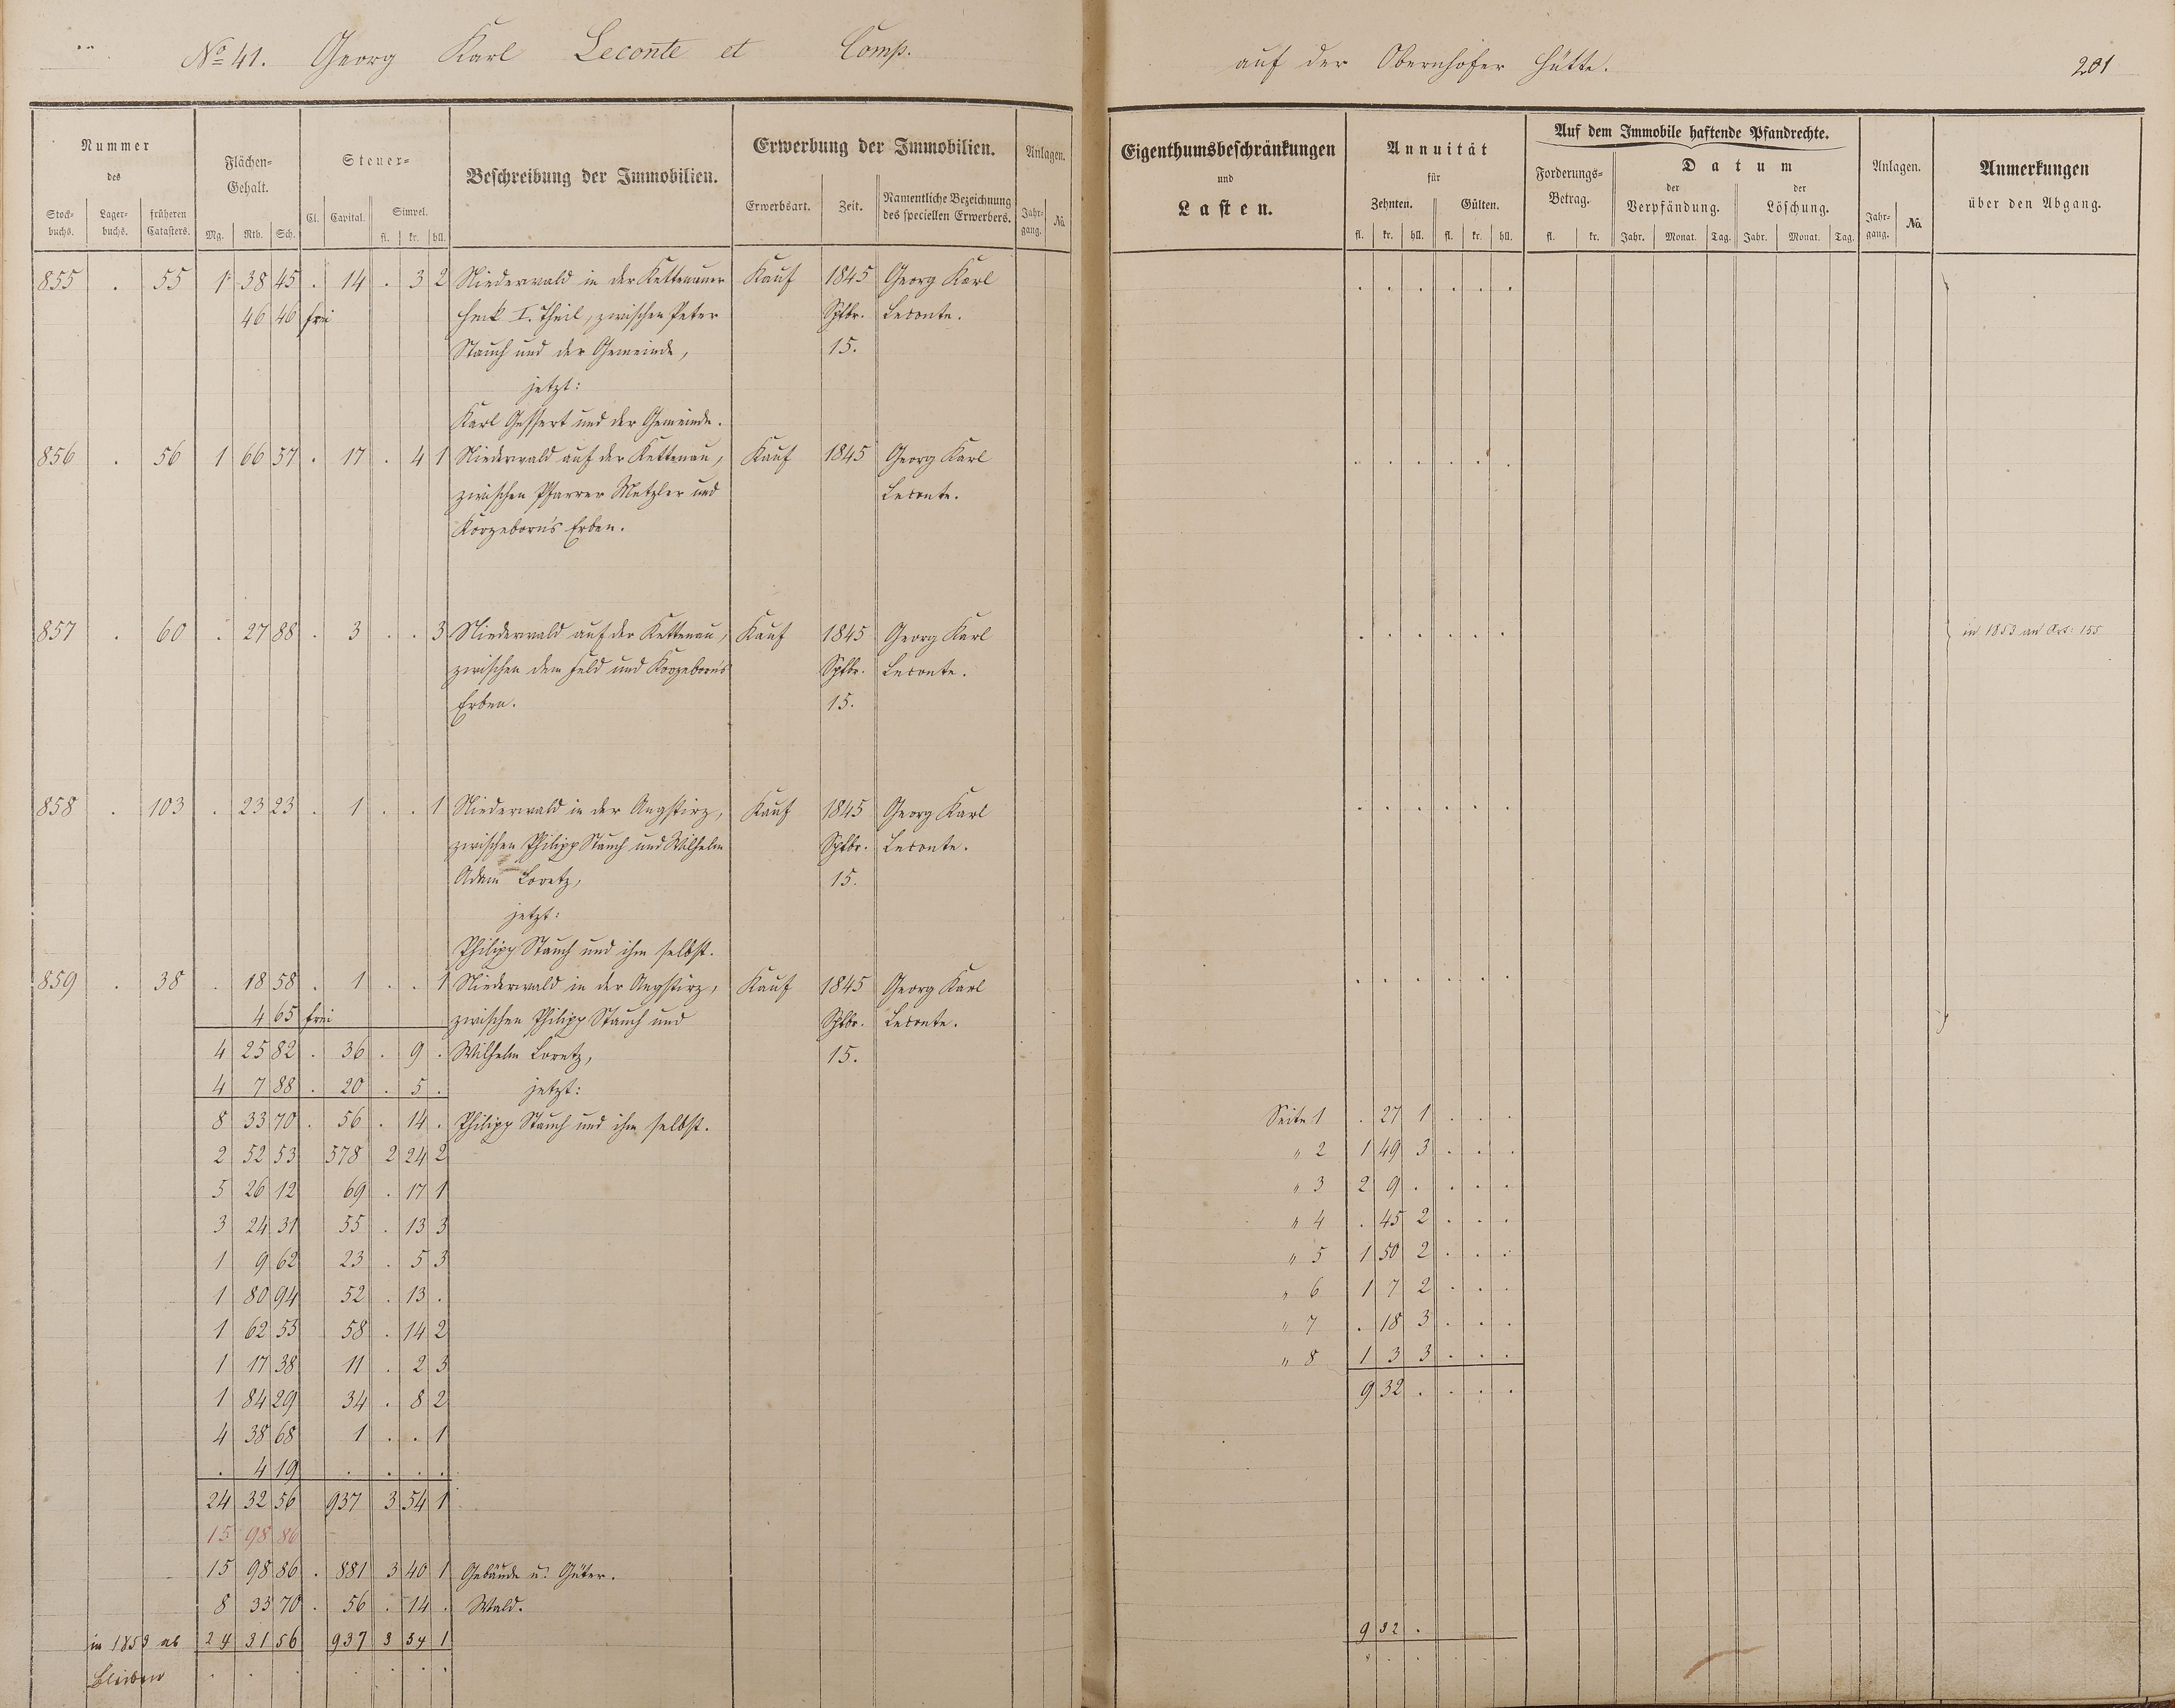 No 41. Georg Karl Leconte et Comp. auf der Obernhofer Hütte. 201
Nummer des
Stockbuchs. Lagerbuchs. früheren Catasters.
Flächen-Gehalt.
Mg. Rth. Sch.
Steuer-
Cl. Capital. Simpel. fl. kr. hll.
Beschreibung der Immobilien.
Erwerbung der Immobilien.
Erwerbsart. Zeit. Namentliche Bezeichnung des speciellen Erwerbers.
Anlagen.
Jahrgang. No
Eigenthumsbeschränkungen und Lasten.
Annuität für
Zehnten. Gülten.
fl. kr. hll. fl. kr. hll.
Auf dem Immobile haftende Pfandrechte.
Forderungs-Betrag. fl. kr.
Datum
der Verpfändung. der Löschung.
Jahr. Monat. Tag. Jahr. Monat. Tag.
Anlagen.
Jahrgang. No
Anmerkungen über den Abgang.
855 . 55 1 38 45 . 14 . 3 2 Niederwald in der Kettenauer Kauf 1845 Georg Karl
46 46 frei heck I. Theil, zwischen Peter Sptbr. Leconte.
Stauch und der Gemeinde, 15.
jetzt:
Karl Gessert und der Gemeinde.
856 . 56 1 66 57 . 17 . 4 1 Niederwald auf der Kettenau, Kauf 1845 Georg Karl
zwischen Pfarrer Metzler und Leconte.
Korzeborn's Erben.
857 . 60 . 27 88 . 3 . . 3 Niederwald auf der Kettenau, Kauf 1845 Georg Karl in 1853 an Art: 155
zwischen dem Feld und Korzeborn's Sptbr. Leconte.
Erben. 15.
858 . 103 . 23 23 . 1 . . 1 Niederwald in der Angstirz, Kauf 1845 Georg Karl
zwischen Philipp Stauch und Wilhelm Sptbr. Leconte.
Adam Loretz, 15.
jetzt:
Philipp Stauch und ihm selbst.
859 . 38 . 18 58 . 1 . . 1 Niederwald in der Angstirz, Kauf 1845 Georg Karl
4 65 frei zwischen Philipp Stauch und Sptbr. Leconte.
4 25 82 . 36 . 9 . Wilhelm Loretz, 15.
4 7 88 . 20 . 5 . jetzt:
8 33 70 . 56 . 14 . Philipp Stauch und ihm selbst. Seite 1 . 27 1 . . .
2 52 53 578 2 24 2 " 2 1 49 3 . . .
5 26 12 69 . 17 1 " 3 2 9 . . . .
3 24 31 55 . 13 3 " 4 . 45 2 . . .
1 9 62 23 . 5 3 " 5 1 50 2 . . .
1 80 94 52 . 13 . " 6 1 7 2 . . .
1 62 53 58 . 14 2 " 7 . 18 3 . . .
1 17 38 11 . 2 3 " 8 1 3 3 . . .
1 84 29 34 . 8 2 9 32 . . . .
4 38 68 1 . . 1
. 4 19 . . . .
24 32 56 937 3 54 1
15 98 86
15 98 86 . 881 3 40 1 Gebäude u. Güter.
8 33 70 . 56 . 14 . Wald.
in 1853 ab 24 31 56 937 3 54 1 9 32 .
bleiben . . . . . . .